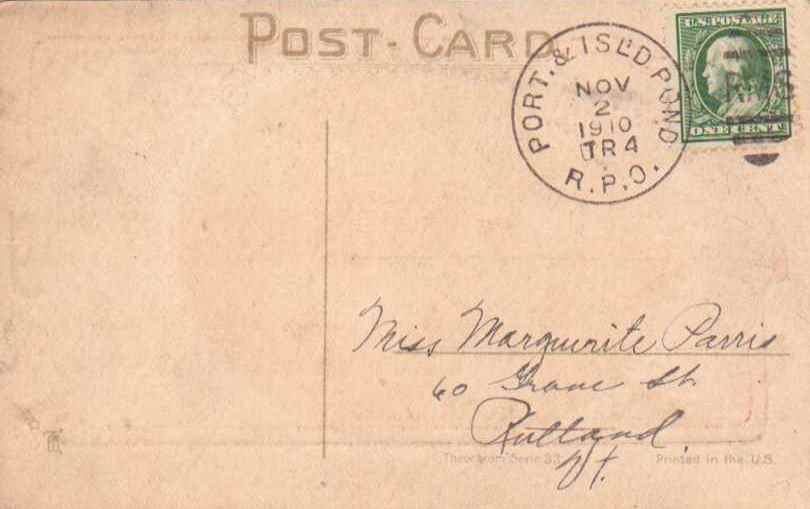 POST-CARD
PORT. & ISL'D POND
NOV
2
1910
TR 4
R.P.O.
U.S. POSTAGE
ONE CENT
RMS
Miss Marguerite Parris
60 Grove St.
Rutland
Vt.
Theochrom Serie 33
Printed in the U.S.